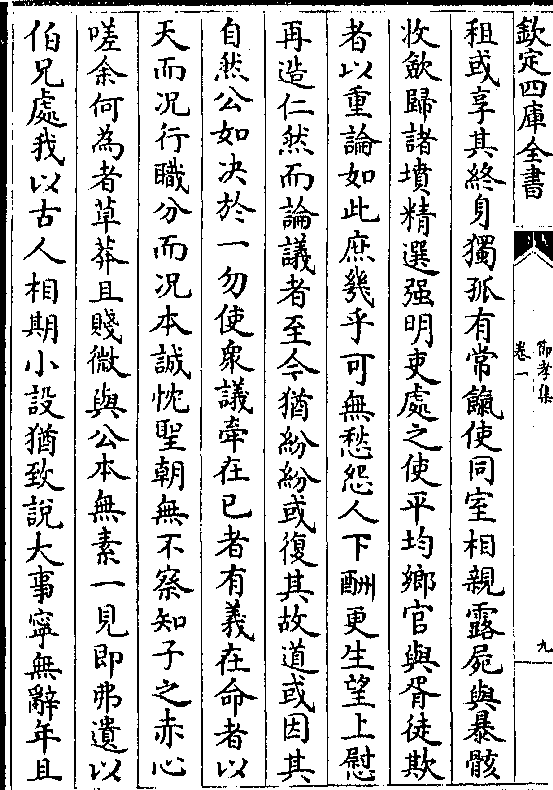 欽定四庫全書
節孝集
卷一
九
租或享其終身獨孤有常餼使同室相親露屍與暴骸
收斂歸諸墳精選强明吏處之使平均鄉官與胥徒欺
者以重論如此庶幾乎可無愁怨人下酬更生望上慰
再造仁然而論議者至今猶紛紛或復其故道或因其
自然公如决於一勿使衆議牽在已者有義在命者以
天而况行職分而况本誠忱聖朝無不察知子之赤心
嗟余何為者草莽且賤微與公本無素一見即弗遺以
伯兄處我以古人相期小設猶致說大事寧無辭年且